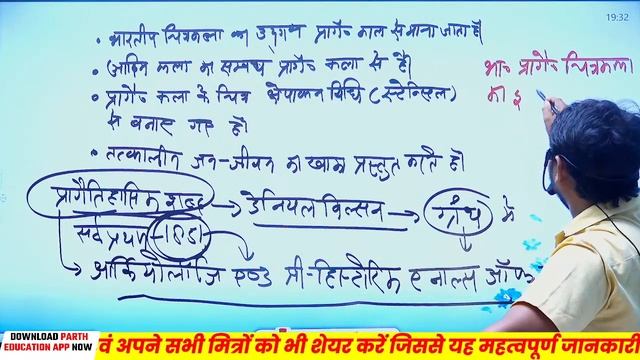 19:32
• भारतीय चित्रकला का उद्गम प्रागै० काल से माना जाता है।
• आदिम कला का सम्बन्ध प्रागै० कला से है।
• प्रागै० कला के चित्र क्षेपांकन विधि (स्टेन्सिल)
से बनाए गए है।
• तत्कालीन जन-जीवन का खाका प्रस्तुत करते है।
प्रागैतिहासिक शब्द → डेनियल विल्सन → ग्रंथ में
सर्व प्रथम 1851
→ आर्कियोलॉजि एण्ड प्री-हिस्टोरिक एनाल्स ऑफ
भा० प्रागै० चित्रकला
का इ
DOWNLOAD PARTH
EDUCATION APP NOW
वं अपने सभी मित्रों को भी शेयर करें जिससे यह महत्वपूर्ण जानकारी